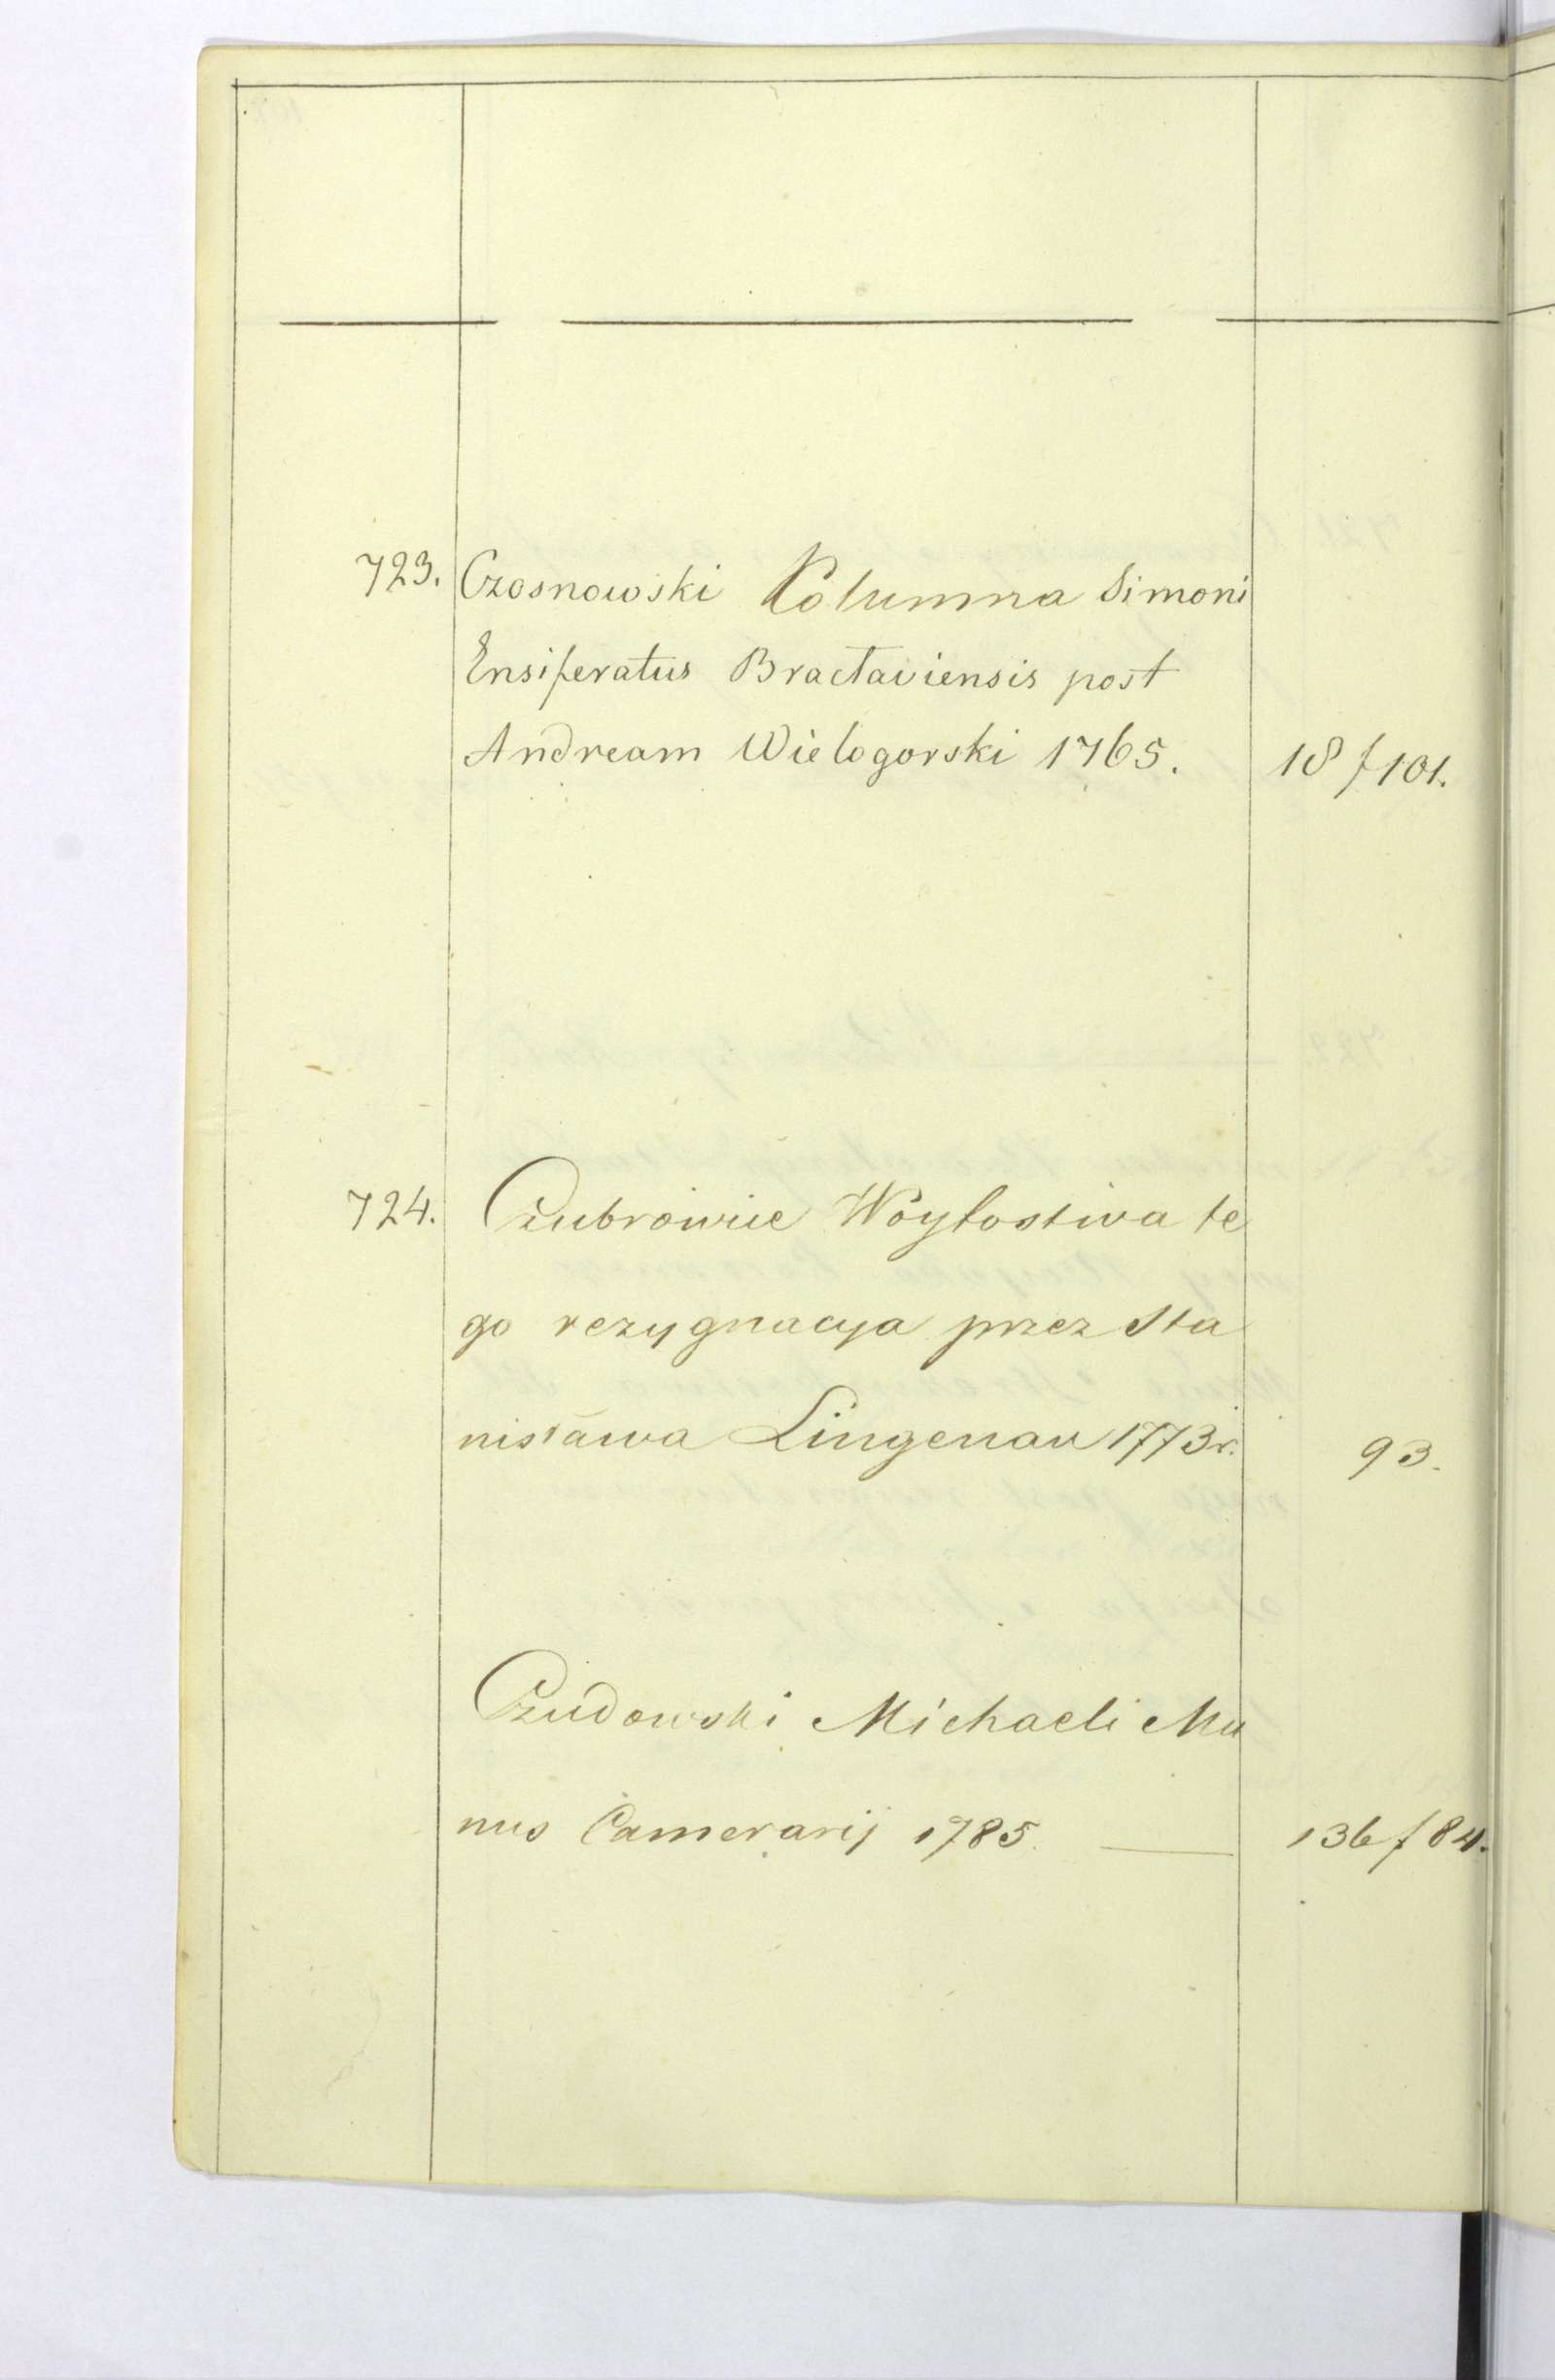 723. Czosnowski Kolumna Simoni
Ensiferatus Bractaviensis post
Andream Wielogorski 1765. 18 f 101.
724. Czubrowice Woytostwa te
go rezygnacya przez Sta
nisława Lingenau 1773 r. 93.
Czudowski Michaeli Mu
nus Camerarij 1785. — 136 f 84.